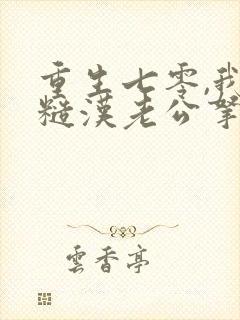 重生七零,我
糙漢老公寧
雲香亭